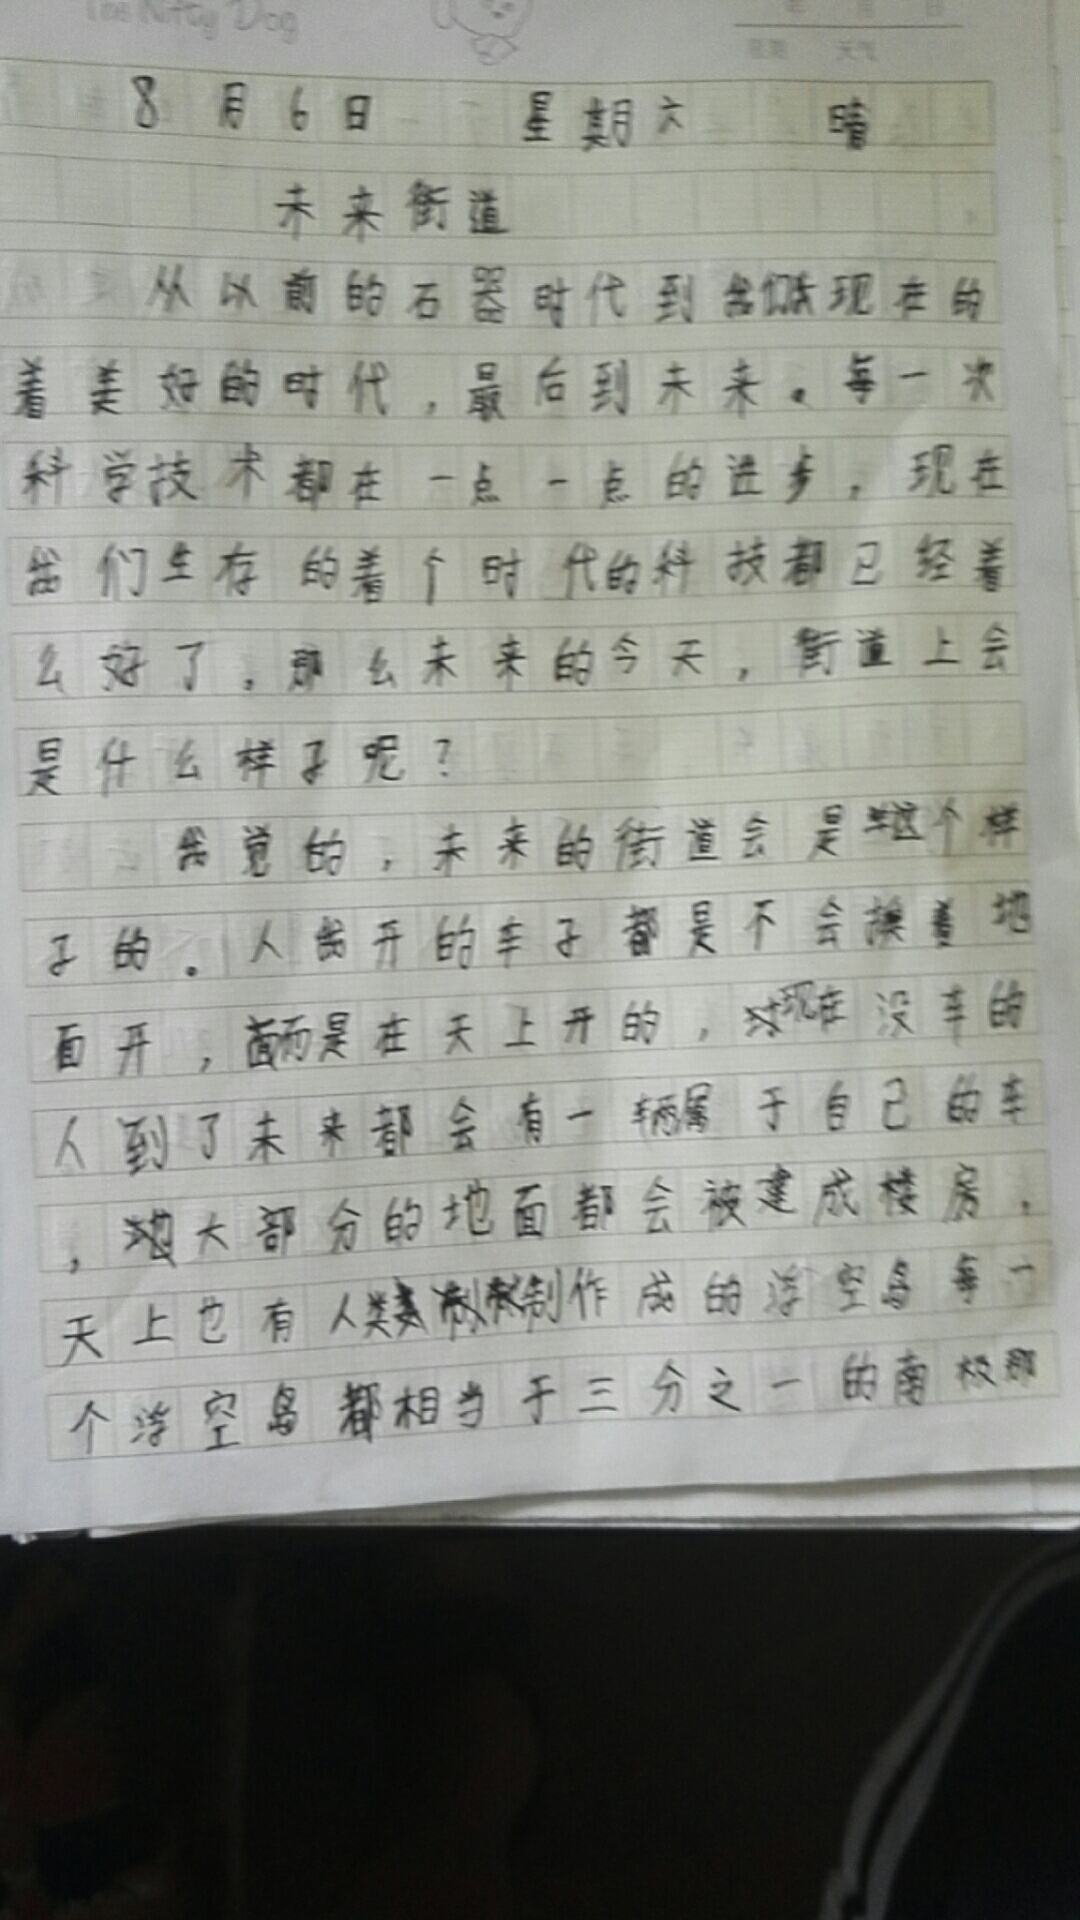 The Nifty Dog
8月6日 星期六 晴
未来街道
从以前的石器时代到我们现在的
着美好的时代，最后到未来。每一次
科学技术都在一点一点的进步，现在
我们生存的着个时代的科技都已经着
么好了，那么未来的今天，街道上会
是什么样子呢？
我觉的，未来的街道会是这个样
子的。人我开的车子都是不会挨着地
面开，而是在天上开的，现在没车的
人到了未来都会有一辆属于自己的车
，大部分的地面都会被建成楼房，
天上也有人类制作成的浮空岛每一
个浮空岛都相当于三分之一的南极那